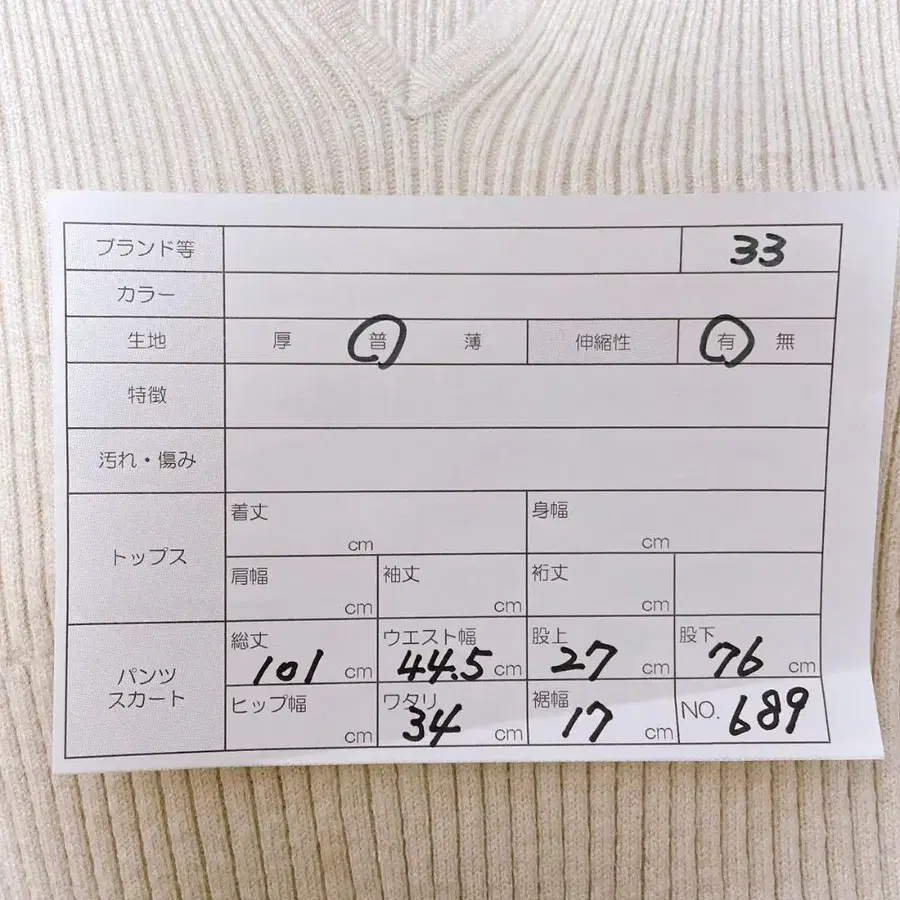 ブランド等 33
カラー
生地 厚 普 薄 伸縮性 有 無
特徴
汚れ・傷み
トップス
着丈 cm 身幅 cm
肩幅 cm 袖丈 cm 裄丈 cm
パンツ
スカート
総丈 101 cm ウエスト幅 44.5 cm 股上 27 cm 股下 76 cm
ヒップ幅 cm ワタリ 34 cm 裾幅 17 cm NO. 689